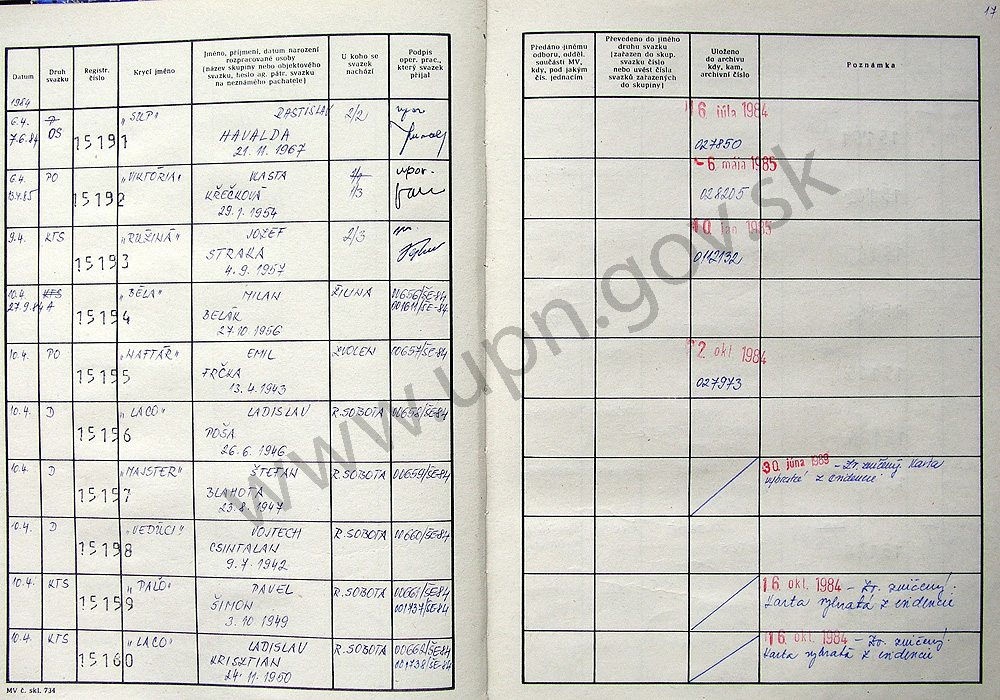 17
Datum
Druh svazku
Registr. číslo
Krycí jméno
Jméno, příjmení, datum narození
rozpracované osoby
(název skupiny nebo objektového
svazku, heslo ag. pátr. svazku
na neznámého pachatele)
U koho se
svazek
nachází
Podpis
oper. prac.,
který svazek
přijal
Předáno jinému
odboru, odděl.
součásti MV,
kdy, pod jakým
čís. jednacím
Převedeno do jiného
druhu svazku
(zařazen do skup.
svazku číslo
nebo uvést čísla
svazků zařazených
do skupiny)
Uloženo
do archivu
kdy, kam,
archivní číslo
Poznámka
1984
6.4. „SUP" RASTISLAV 2/2
7.6.84 OS 15191 HAVALDA
21. 11. 1967
16. júla 1984
027850
6.4. PO „VIKTÓRIA" VLASTA
15192 KŘEČKOVÁ 1/3
29. 1. 1954
-6. mája 1985
028205
9.4. KTS „RUŽINÁ" JOZEF 2/3
15193 STRAKA
4. 9. 1957
10. jan 1985
0112132
10.4. KTS „BĚLA" MILAN ŽILINA 00656/ŠE-84
27.9.84 A 15154 BELÁK 001611/ŠE-84
27. 10. 1956
10.4. PO „NAFTÁŘ" EMIL ZVOLEN 00657/ŠE-84
15155 FRČKA
13. 4. 1943
12. okt. 1984
027973
10.4. D „LACO" LADISLAV R. SOBOTA 00658/ŠE-84
15156 POŠA
26. 6. 1946
10.4. D „MAJSTER" ŠTEFAN R. SOBOTA 00659/ŠE-84
15157 BLAHOTA
23. 8. 1947
30. júna 1989 - Zv. zničený. Karta
vybratá z evidencie
10.4. D „VEDÚCI" VOJTECH R. SOBOTA 00660/ŠE-84
15158 CSINTALAN
9. 7. 1942
10.4. KTS „PALO" PAVEL R. SOBOTA 00661/ŠE-84
15159 ŠIMON 001737/ŠE-84
3. 10. 1949
16. okt. 1984 - Zv. zničený.
Karta vybratá z evidencie
10.4. KTS „LACO" LADISLAV R. SOBOTA 00662/ŠE-84
15160 KRISZTIÁN 001738/ŠE-84
24. 11. 1950
16. okt. 1984 - Zv. zničený.
Karta vybratá z evidencie
MV č. skl. 734
www.upn.gov.sk